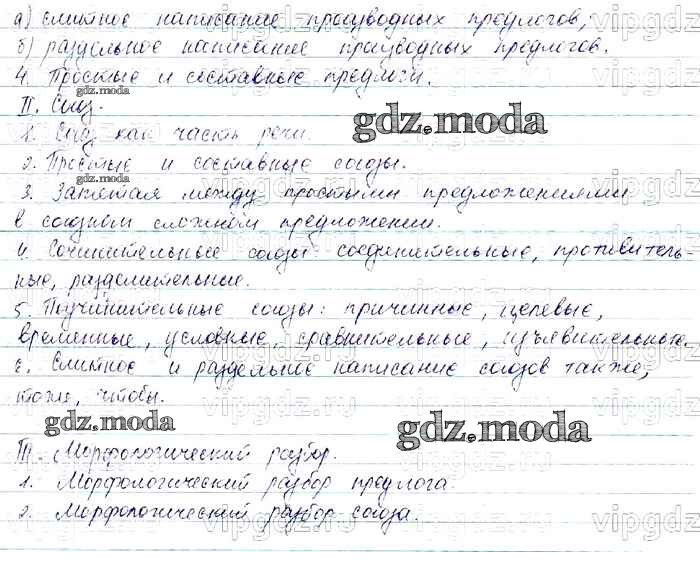 а) слитное написание производных предлогов;
б) раздельное написание производных предлогов.
4. Простые и составные предлоги.
gdz.moda
II. Союз.
gdz.moda
1. Союз как часть речи.
2. Простые и составные союзы.
3. Запятая между простыми предложениями
в союзном сложном предложении.
4. Сочинительные союзы: соединительные, противитель-
ные, разделительные.
5. Подчинительные союзы: причинные, целевые,
временные, условные, сравнительные, изъявительные.
6. Слитное и раздельное написание союзов также,
тоже, чтобы.
gdz.moda
gdz.moda
III. Морфологический разбор.
1. Морфологический разбор предлога.
2. Морфологический разбор союза.